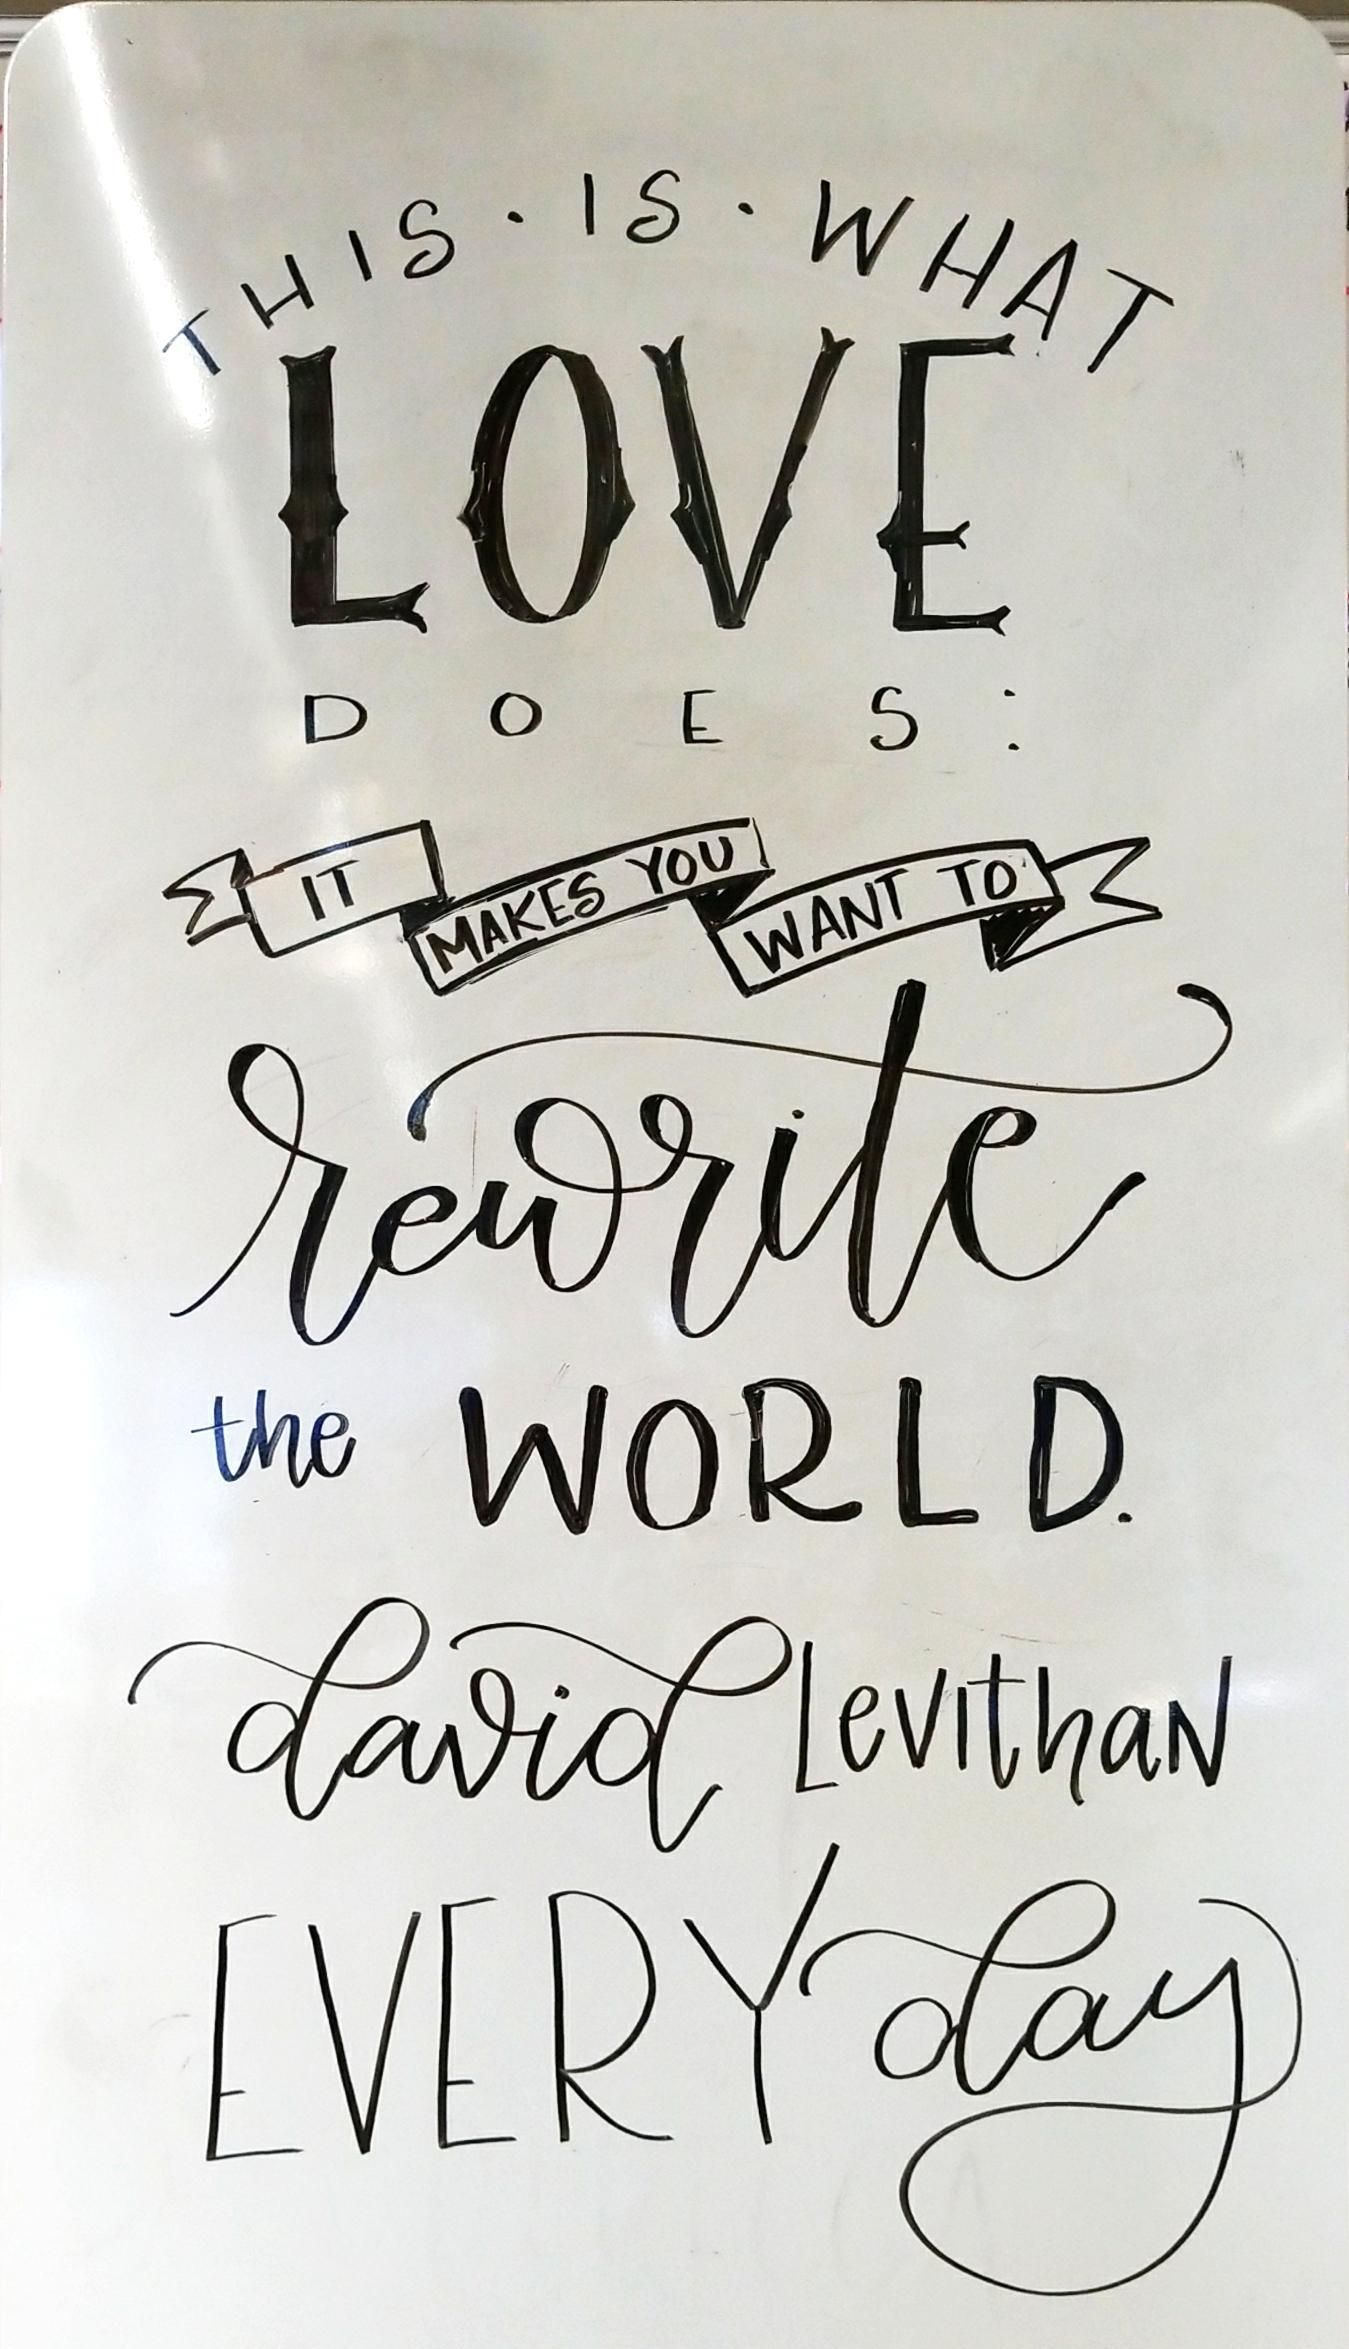 THIS · IS · WHAT
LOVE
DOES:
IT MAKES YOU WANT TO
rewrite
the WORLD.
david LevIthaN
EVERY day